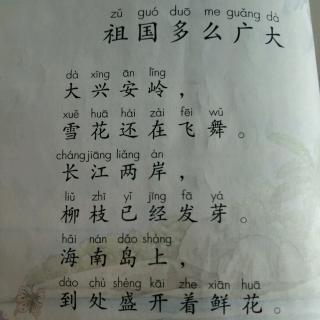 zǔ guó duō me guǎng dà
祖国多么广大
dà xīng ān lǐng
大兴安岭，
xuě huā hái zài fēi wǔ
雪花还在飞舞。
cháng jiāng liǎng àn
长江两岸，
liǔ zhī yǐ jīng fā yá
柳枝已经发芽。
hǎi nán dǎo shàng
海南岛上，
dào chù shèng kāi zhe xiān huā
到处盛开着鲜花。